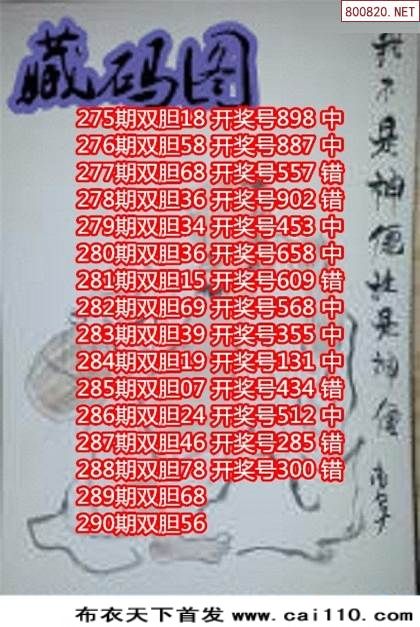 800820.NET
藏码图
275期双胆18 开奖号898 中
276期双胆58 开奖号887 中
277期双胆68 开奖号557 错
278期双胆36 开奖号902 错
279期双胆34 开奖号453 中
280期双胆36 开奖号658 中
281期双胆15 开奖号609 错
282期双胆69 开奖号568 中
283期双胆39 开奖号355 中
284期双胆19 开奖号131 中
285期双胆07 开奖号434 错
286期双胆24 开奖号512 中
287期双胆46 开奖号285 错
288期双胆78 开奖号300 错
289期双胆68
290期双胆56
我不是神仙
是神仙
布衣天下首发 www.cai110.com